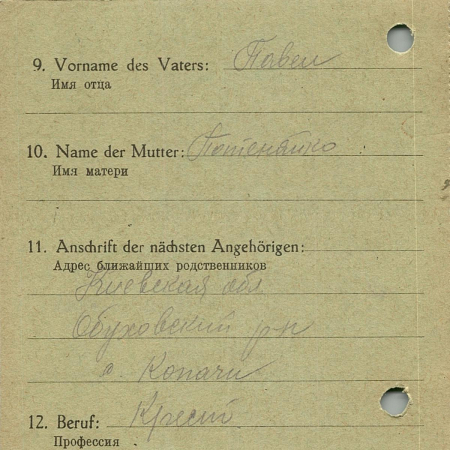 9. Vorname des Vaters: Павел
Имя отца
10. Name der Mutter: Потенятко
Имя матери
11. Anschrift der nächsten Angehörigen:
Адрес ближайших родственников
Киевская обл
Обуховский р-н
с. Копачи
12. Beruf: Крест
Профессия